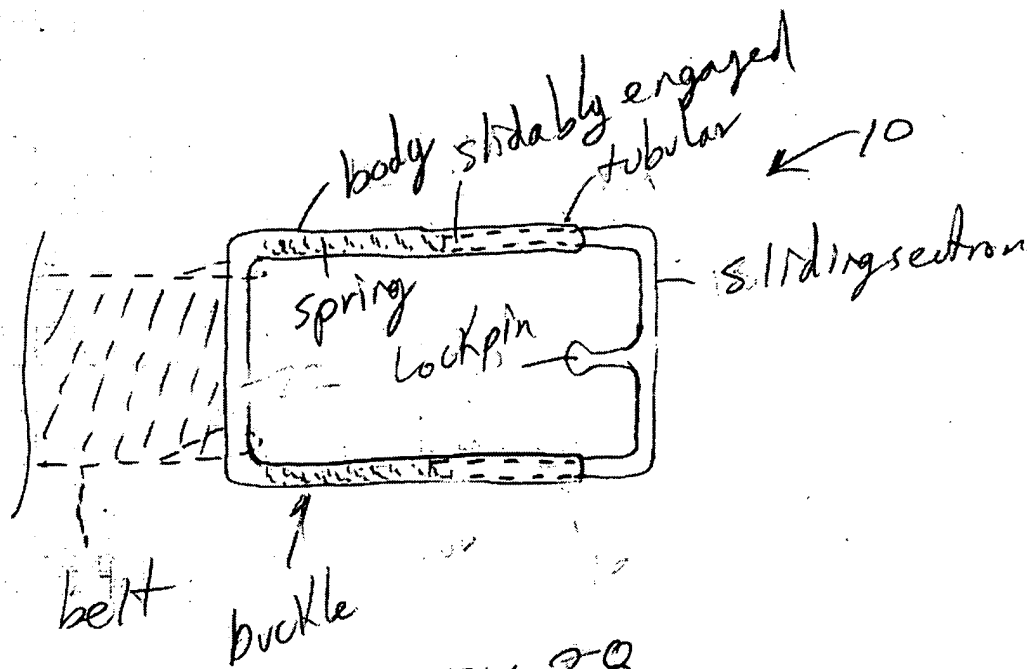 body
slidably engaged
tubular
10
sliding section
spring
Lockpin
belt
buckle